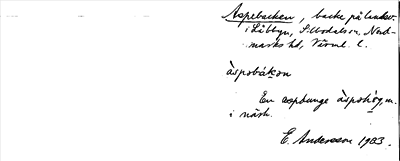 Aspebacken, backe på landsv.
i Låbbyn, S. Undalsn, Nord-
marks hd, Värml. l.
àspəbák̲on
En aspdunge àspəhög, m.
i närh.
E. Andersson 1983.